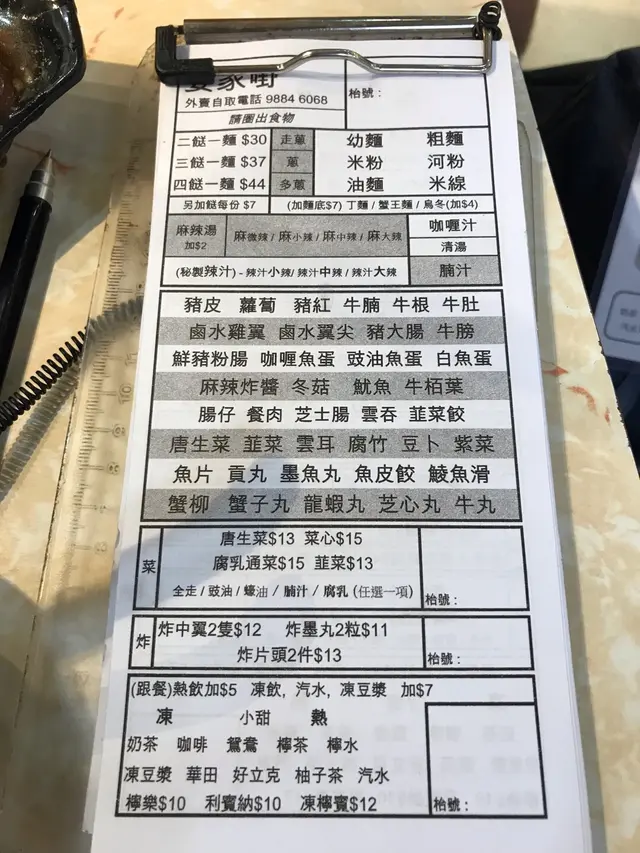 外賣自取電話 9884 6068
枱號：
請圈出食物
二餸一麵 $30 走蔥 幼麵 粗麵
三餸一麵 $37 蔥 米粉 河粉
四餸一麵 $44 多蔥 油麵 米線
另加餸每份 $7 (加麵底$7) 丁麵 / 蟹王麵 / 烏冬(加$4)
麻辣湯 加$2 麻微辣 / 麻小辣 / 麻中辣 / 麻大辣 咖喱汁
清湯
(秘製辣汁) - 辣汁小辣/ 辣汁中辣 / 辣汁大辣 腩汁
豬皮 蘿蔔 豬紅 牛腩 牛根 牛肚
鹵水雞翼 鹵水翼尖 豬大腸 牛膀
鮮豬粉腸 咖喱魚蛋 豉油魚蛋 白魚蛋
麻辣炸醬 冬菇 魷魚 牛栢葉
腸仔 餐肉 芝士腸 雲吞 韮菜餃
唐生菜 韮菜 雲耳 腐竹 豆卜 紫菜
魚片 貢丸 墨魚丸 魚皮餃 鯪魚滑
蟹柳 蟹子丸 龍蝦丸 芝心丸 牛丸
菜 唐生菜$13 菜心$15
腐乳通菜$15 韮菜$13
全走 / 豉油 / 蠔油 / 腩汁 / 腐乳 (任選一項) 枱號：
炸 炸中翼2隻$12 炸墨丸2粒$11
炸片頭2件$13 枱號：
(跟餐)熱飲加$5 凍飲, 汽水, 凍豆漿 加$7
凍 小甜 熱
奶茶 咖啡 鴛鴦 檸茶 檸水
凍豆漿 華田 好立克 柚子茶 汽水
檸樂$10 利賓納$10 凍檸賓$12 枱號：